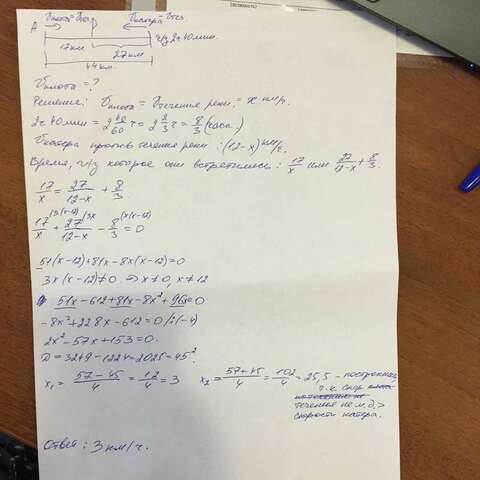 Vплота=Vтеч. Vкатера-Vтеч.
A
17км 27км ч/з 2ч 40мин.
44км.
Vплота = ?
Решение: Vплота = Vтечения реки = x км/ч.
2ч 40мин = 2 40/60 ч = 2 2/3 ч = 8/3 (часа.)
Vкатера против течения реки: (12-x) км/ч.
Время, ч/з которое они встретились: 17/x или 27/12-x + 8/3.
17/x = 27/12-x + 8/3.
17/x + 27/12-x - 8/3 = 0
51(x-12)+81x-8x(x-12)=0
3x(x-12)≠0 ⇒ x≠0, x≠12
51x-612+81x-8x²+96x=0
-8x²+228x-612=0 /:(-4)
2x²-57x+153=0.
D=3249-1224=2025=45²
x₁= 57-45/4 = 12/4 = 3 x₂= 57+45/4 = 102/4 = 25,5 -
т.к. скор
течения не м.б. >
скорости катера.
Ответ: 3 км/ч.